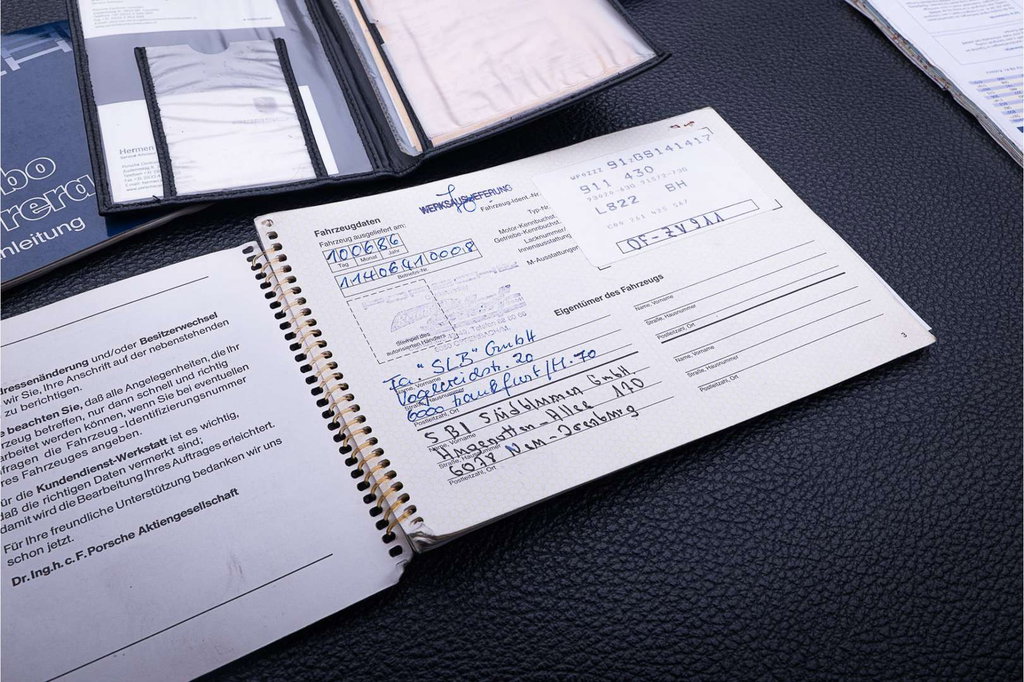 bo
rrera
nleitung
Hermen
dressenänderung und/oder Besitzerwechsel
wir Sie, Ihre Anschrift auf der nebenstehenden
zu berichtigen.
beachten Sie, daß alle Angelegenheiten, die Ihr
rzeug betreffen, nur dann schnell und richtig
arbeitet werden können, wenn Sie bei eventuellen
fragen die Fahrzeug-Identifizierungsnummer
res Fahrzeuges angeben.
ür die Kundendienst-Werkstatt ist es wichtig,
daß die richtigen Daten vermerkt sind;
damit wird die Bearbeitung Ihres Auftrages erleichtert.
Für Ihre freundliche Unterstützung bedanken wir uns
schon jetzt.
Dr. Ing. h. c. F. Porsche Aktiengesellschaft
WERKSAUSLIEFERUNG
Fahrzeugdaten
Fahrzeug ausgeliefert am:
100686
Tag Monat Jahr
11406410008
Betriebs-Nr.
Stempel des
autorisierten Händlers
Fahrzeug-Ident.-Nr.
Typ-Nr.
Motor-Kennbuchst.
Getriebe-Kennbuchst.
Lacknummer/
Innenausstattung
M-Ausstattungen
WP0ZZZ 91ZGS141417
911 430
L822 8H
OF-ZV911
Eigentümer des Fahrzeugs
Fa "SLB" GmbH
Name, Vorname
Vogelweidstr. 20
Straße, Hausnummer
6000 Frankfurt/M. 70
Postleitzahl, Ort
SBI Südblumen GmbH
Name, Vorname
Hugenotten-Allee 120
Straße, Hausnummer
6078 Neu-Isenburg
Postleitzahl, Ort
Name, Vorname
Straße, Hausnummer
Postleitzahl, Ort
Name, Vorname
Straße, Hausnummer
Postleitzahl, Ort
3